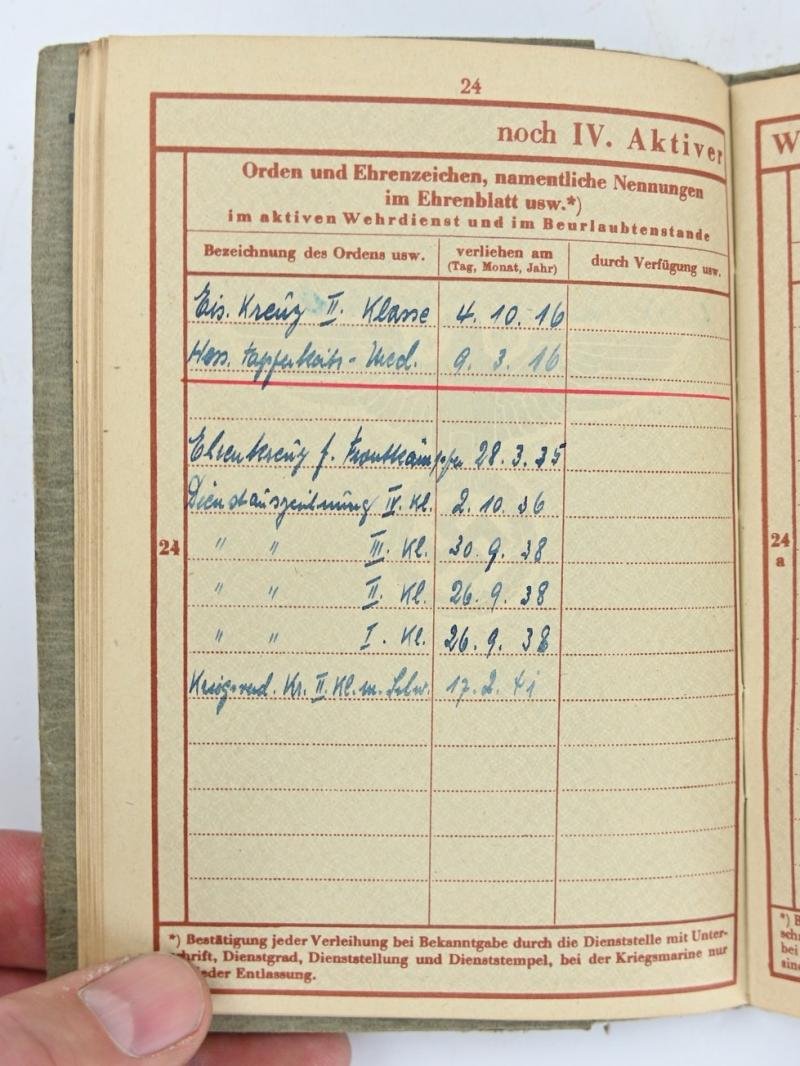 24
noch IV. Aktiver
Orden und Ehrenzeichen, namentliche Nennungen
im Ehrenblatt usw.*)
im aktiven Wehrdienst und im Beurlaubtenstande
Bezeichnung des Ordens usw. verliehen am (Tag, Monat, Jahr) durch Verfügung usw.
Eis. Kreuz II. Klasse 4. 10. 16
Hess. Tapferkeits-Med. 9. 3. 16
Ehrenkreuz f. Frontkämpfer 28. 3. 35
Dienstauszeichnung IV. Kl. 2. 10. 36
24 " " III. Kl. 30. 9. 38
" " II. Kl. 26. 9. 38
" " I. Kl. 26. 9. 38
Kriegsverd. Kr. II. Kl. m. Schw. 17. 2. 41
*) Bestätigung jeder Verleihung bei Bekanntgabe durch die Dienststelle mit Unter-
schrift, Dienstgrad, Dienststellung und Dienststempel, bei der Kriegsmarine nur
jeder Entlassung.
W
24
a
*) B
schr
bei
sin